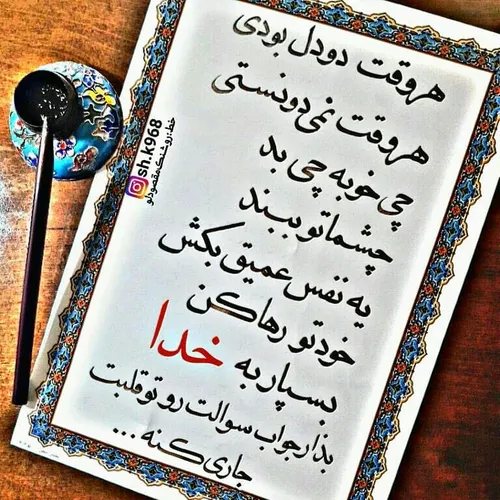 هر وقت دودل بودی
هر وقت نمی دونستی
چی خوبه چی بد
چشماتو ببند
یه نفس عمیق بکش
خودتو رها کن
بسپار به خدا
بذار جواب سوالت رو تو قلبت
جاری کنه ...
sh.k968